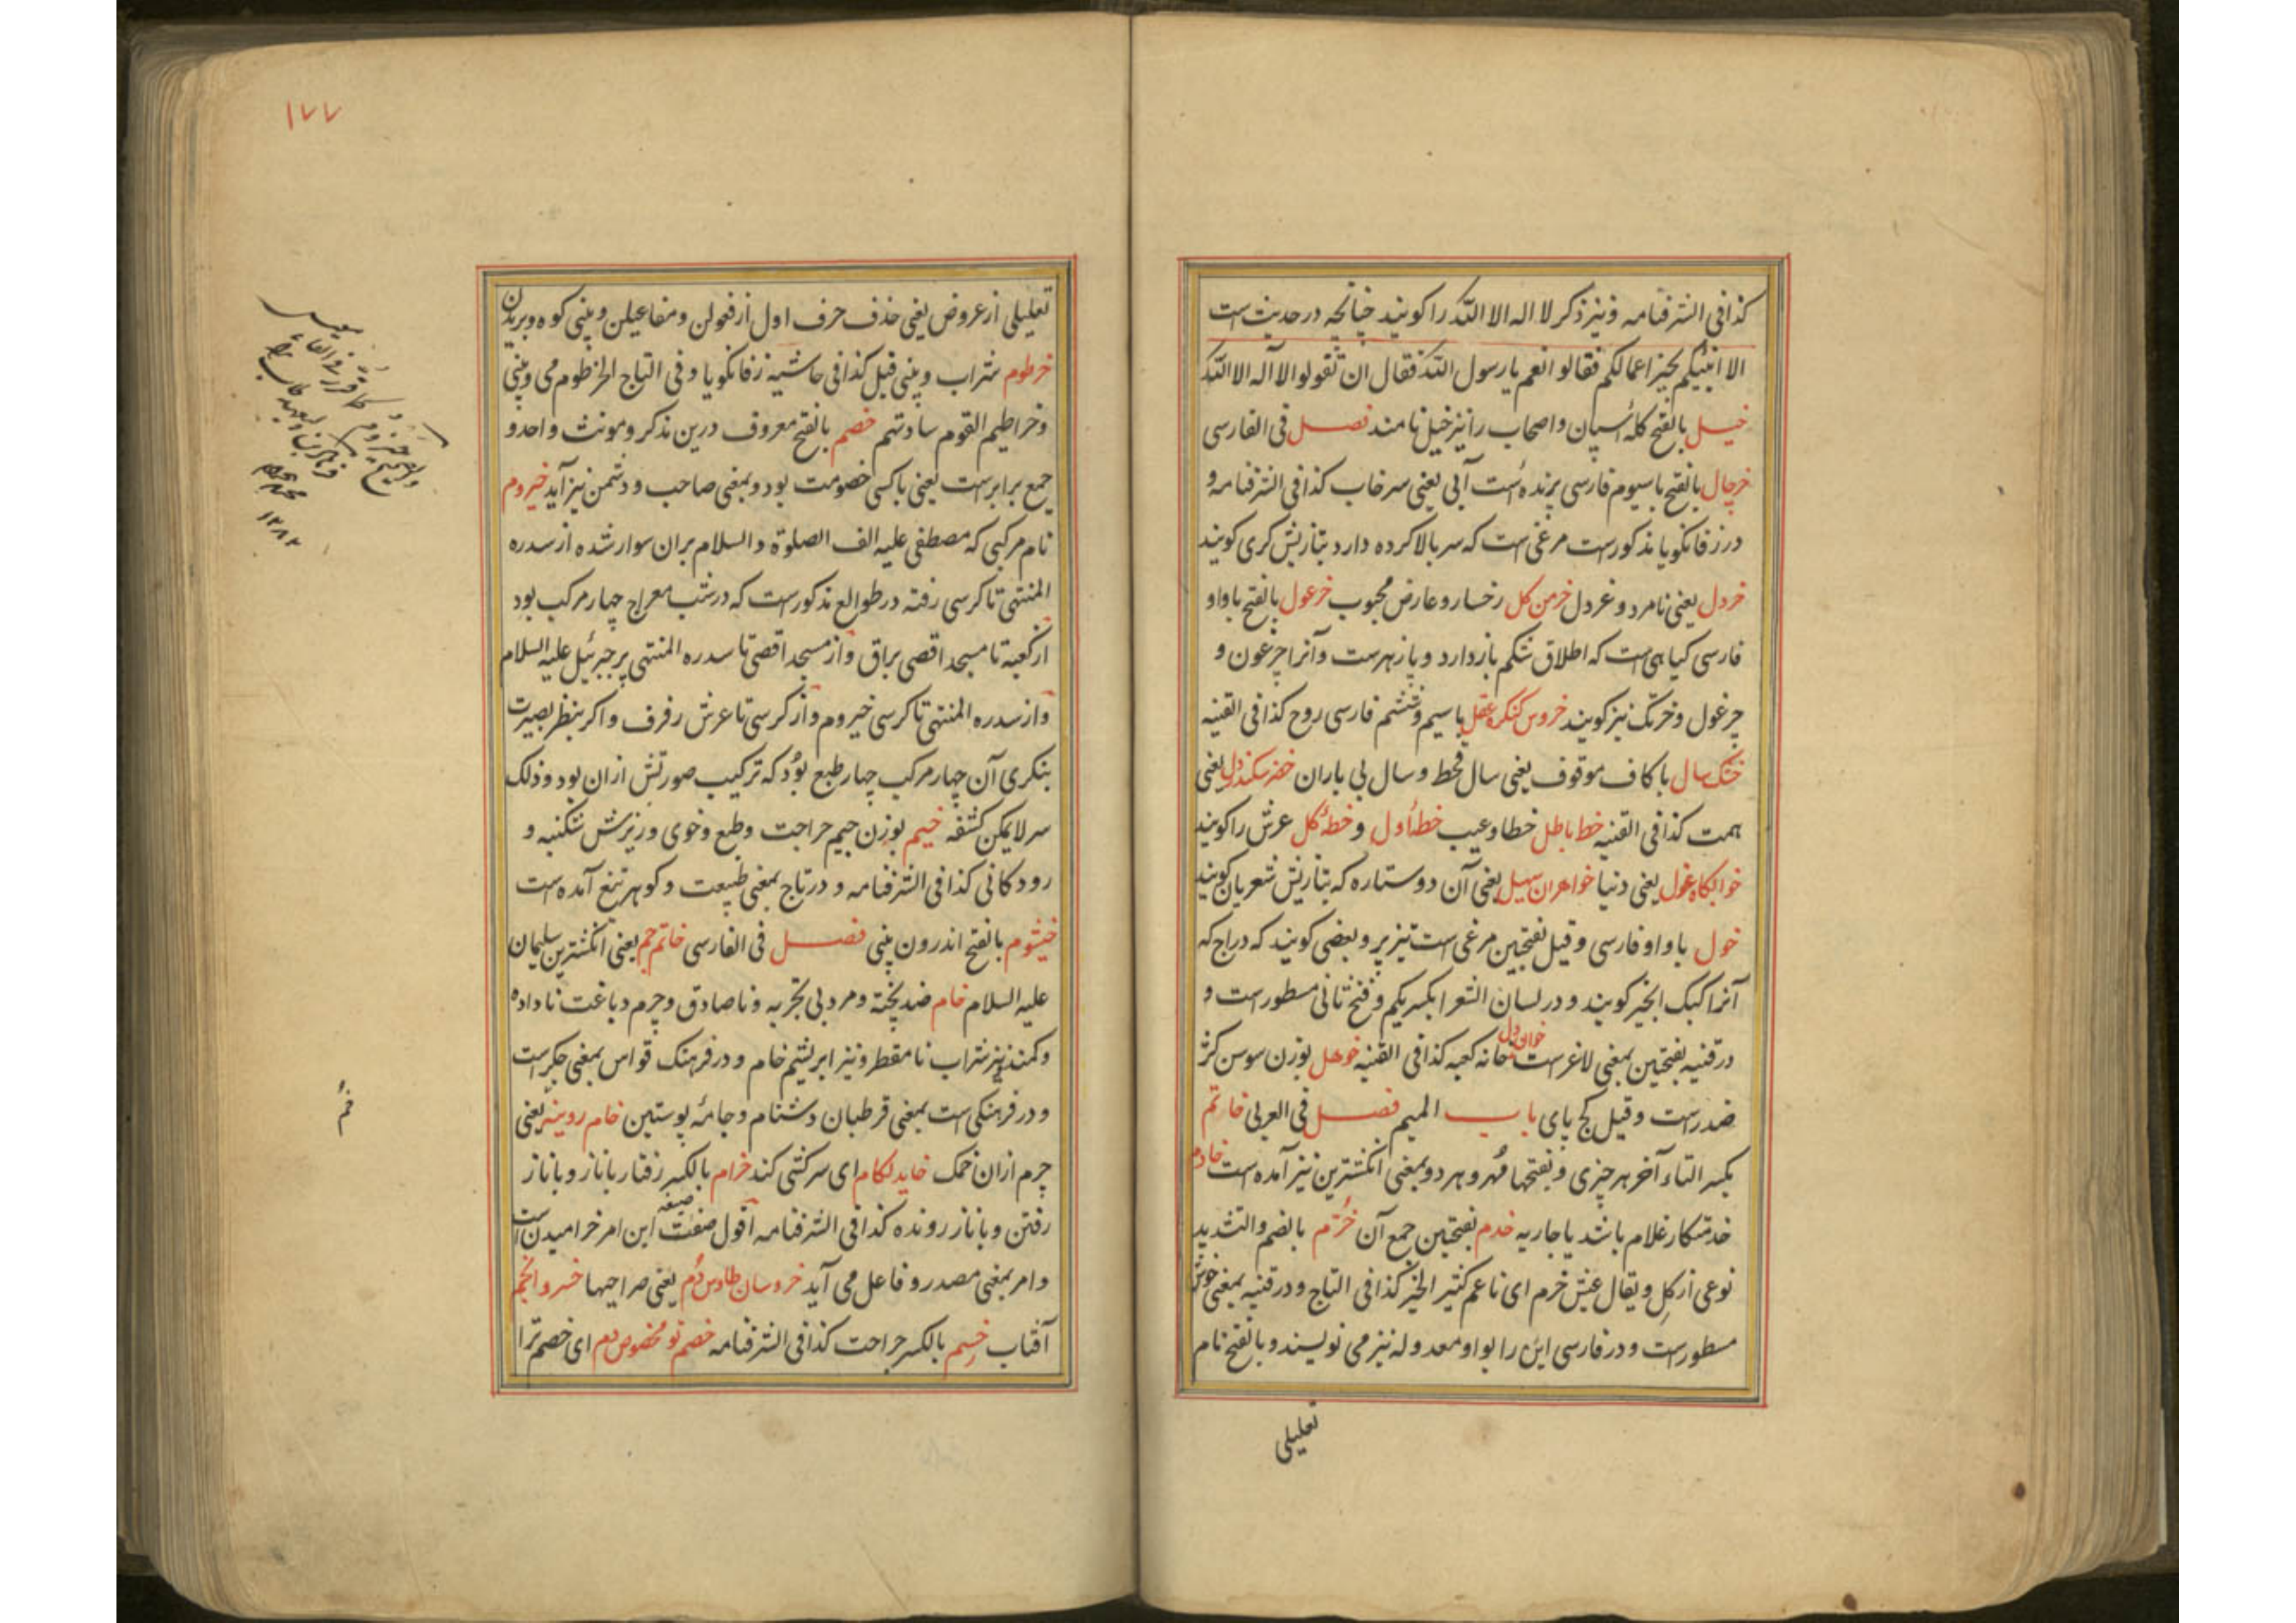 کذا فی الشرفنامه و نیز ذکر لا اله الا الله را کویند چنانچه در حدیث است
الا انبئکم بخیر اعمالکم فقالوا نعم یا رسول الله فقال ان تقولوا لا اله الا الله
خیل بالفتح کلهٔ اسپان و اصحاب را نیز خیل نامند فصل فی الفارسی
خرچال بالفتح با سیوم فارسی پرنده است آبی یعنی سرخاب کذا فی الشرفنامه و
در زفانکویا مذکورست مرغی است که سر بالا کرده دارد بتازیش کری کویند
خردل یعنی نامرد و غردل خرمن کل رخسار و عارض محبوب خرغول بالفتح با واو
فارسی کیاهی است که اطلاق شکم باز دارد و پازهرست و آنرا چرغون و
چرغول و خرنک نیز کویند خروس کنکره عقل با سیم و ششم فارسی روح کذا فی القنیه
خشک سال با کاف موقوف یعنی سال قحط و سال بی باران خضر سکندر دل یعنی
همت کذا فی القنیه خط باطل خطا و عیب خط اول و خطهٔ کل عرش را کویند
خوابکاه غول یعنی دنیا خواهران سهیل یعنی آن دو ستاره که بتازیش شعریان کویند
خول با واو فارسی و قیل بفتحین مرغی است تیز پر و بعضی کویند که دراج که
آنرا کبک انجیر کویند و در لسان الشعرا بکسر یکم و فتح ثانی مسطورست و
در قنیه بفتحتین بمعنی لاغرست خوان دل خانه کعبه کذا فی القنیه خوهل بوزن سوسن کژ
ضد راست و قیل کج پای باب المیم فصل فی العربی خاتم
بکسر التاء آخر هر چیزی و بفتحها مهر و هر دو بمعنی انکشترین نیز آمده است خادم
خدمتکار غلام باشد یا جاریه خدم بفتحتین جمع آن خرم بالضم و التشدید
نوعی از کل و یقال عیش خرم ای ناعم کثیر الخیر کذا فی التاج و در قنیه بمعنی خوش
مسطورست و در فارسی این را بواو معدوله نیز می نویسند و بالفتح نام
تعلیلی
۱۷۷
تعلیلی از عروض یعنی حذف حرف اول از فعولن و مفاعیلن و بینی کوه و بریدن
خرطوم شراب و بینی فیل کذا فی حاشیه زفانکویا و فی التاج الخرطوم می و بینی
و خراطیم القوم ساداتهم خصم بالفتح معروف درین مذکر و مونث و واحد و
جمع برابرست یعنی با کسی خصومت بود و بمعنی صاحب و دشمن نیز آید خیروم
نام مرکبی که مصطفی علیه الف الصلوة و السلام بران سوار شده از سدره
المنتهی تا کرسی رفته در طوالع مذکورست که در شب معراج چهار مرکب بود
از کعبه تا مسجد اقصی براق و از مسجد اقصی تا سدره المنتهی پر جبرئیل علیه السلام
و از سدره المنتهی تا کرسی خیروم و از کرسی تا عرش رفرف و اکر بنظر بصیرت
بنکری آن چهار مرکب چهار طبع بود که ترکیب صورتش ازان بود و ذلک
سر لا یمکن کشفه خیم بوزن جیم جراحت و طبع و خوی و ریزش شکنبه و
رودکانی کذا فی الشرفنامه و در تاج بمعنی طبیعت و کوهر تیغ آمده است
خیشوم بالفتح اندرون بینی فصل فی الفارسی خاتم جم یعنی انکشترین سلیمان
علیه السلام خام ضد پخته و مرد بی تجربه و ناصادق و چرم دباغت ناداده
و کمند و نیز شراب نامقطر و نیز ابریشم خام و در فرهنک قواس بمعنی چکرست
و در فرهنکی است بمعنی قرطبان دشنام و جامهٔ پوستین خام روینه یعنی
چرم ازان خمک خاید لکام ای سرکشی کند خرام بالکسر رفتار با ناز و با ناز
رفتن و با ناز رونده کذا فی الشرفنامه اقول صفت صیغه این امر خرامیدن است
و امر بمعنی مصدر و فاعل می آید خروسان طاوس دم یعنی صراحیها خسرو انجم
آفتاب خسم بالکسر جراحت کذا فی الشرفنامه خصم تو مخصوص بدم ای خصم ترا
۱۲۸۲
خم